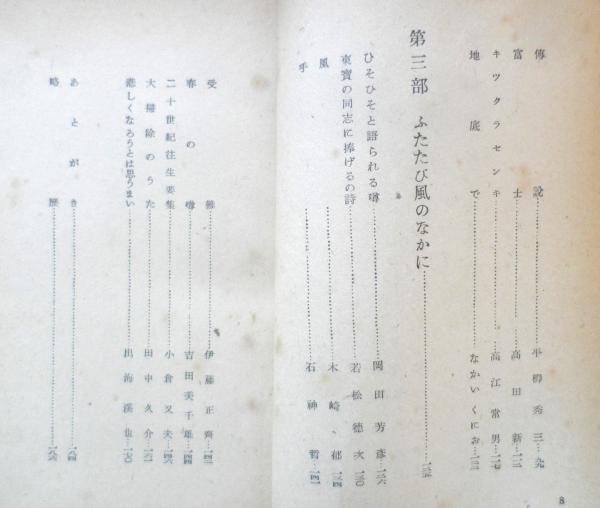 傳説……平樽秀三…九
富士……高田新…一二
キツクラセンキ……高江常男…一七
地底で……なかいくにお…二二
第三部 ふたたび風のなかに……
ひそひそと語られる噂……岡田芳彦
東寶の同志に捧げるの詩……若松德次…一三〇
風……木崎、郁…一三四
手……石神哲…一四一
受難……伊藤正齊…一四二
春の噂……吉田美千雄…一四四
二十世紀往生要集……小倉又夫…一四六
大掃除のうた……田中久介…一六一
悲しくなろうとは思うまい……出海溪也…一七〇
あとがき……一八四
略歴……一八六
8